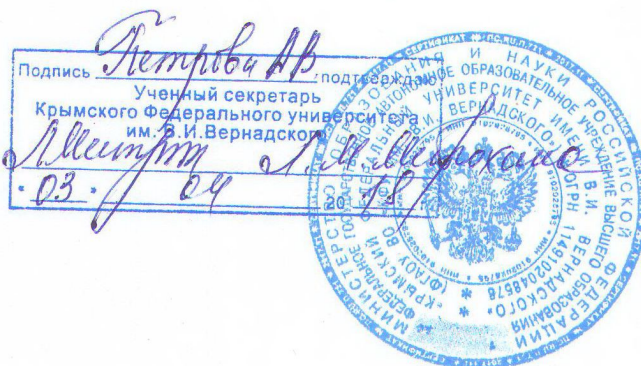 Подпись Петрова АВ подтверждаю
Ученный секретарь
Крымского Федерального университета
им. В.И.Вернадского
Л.М. Митрохина
"03" 04 2018
МИНИСТЕРСТВО ОБРАЗОВАНИЯ И НАУКИ РОССИЙСКОЙ ФЕДЕРАЦИИ
ФЕДЕРАЛЬНОЕ ГОСУДАРСТВЕННОЕ АВТОНОМНОЕ ОБРАЗОВАТЕЛЬНОЕ УЧРЕЖДЕНИЕ ВЫСШЕГО ОБРАЗОВАНИЯ
"КРЫМСКИЙ ФЕДЕРАЛЬНЫЙ УНИВЕРСИТЕТ ИМЕНИ В.И. ВЕРНАДСКОГО"
(ФГАОУ ВО В.И. ВЕРНАДСКОГО") ОГРН 1149102048578